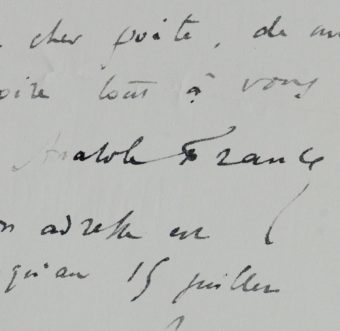 cher poète, de
tout à vous
Anatole France
adresse est
qu'au 15 juillet